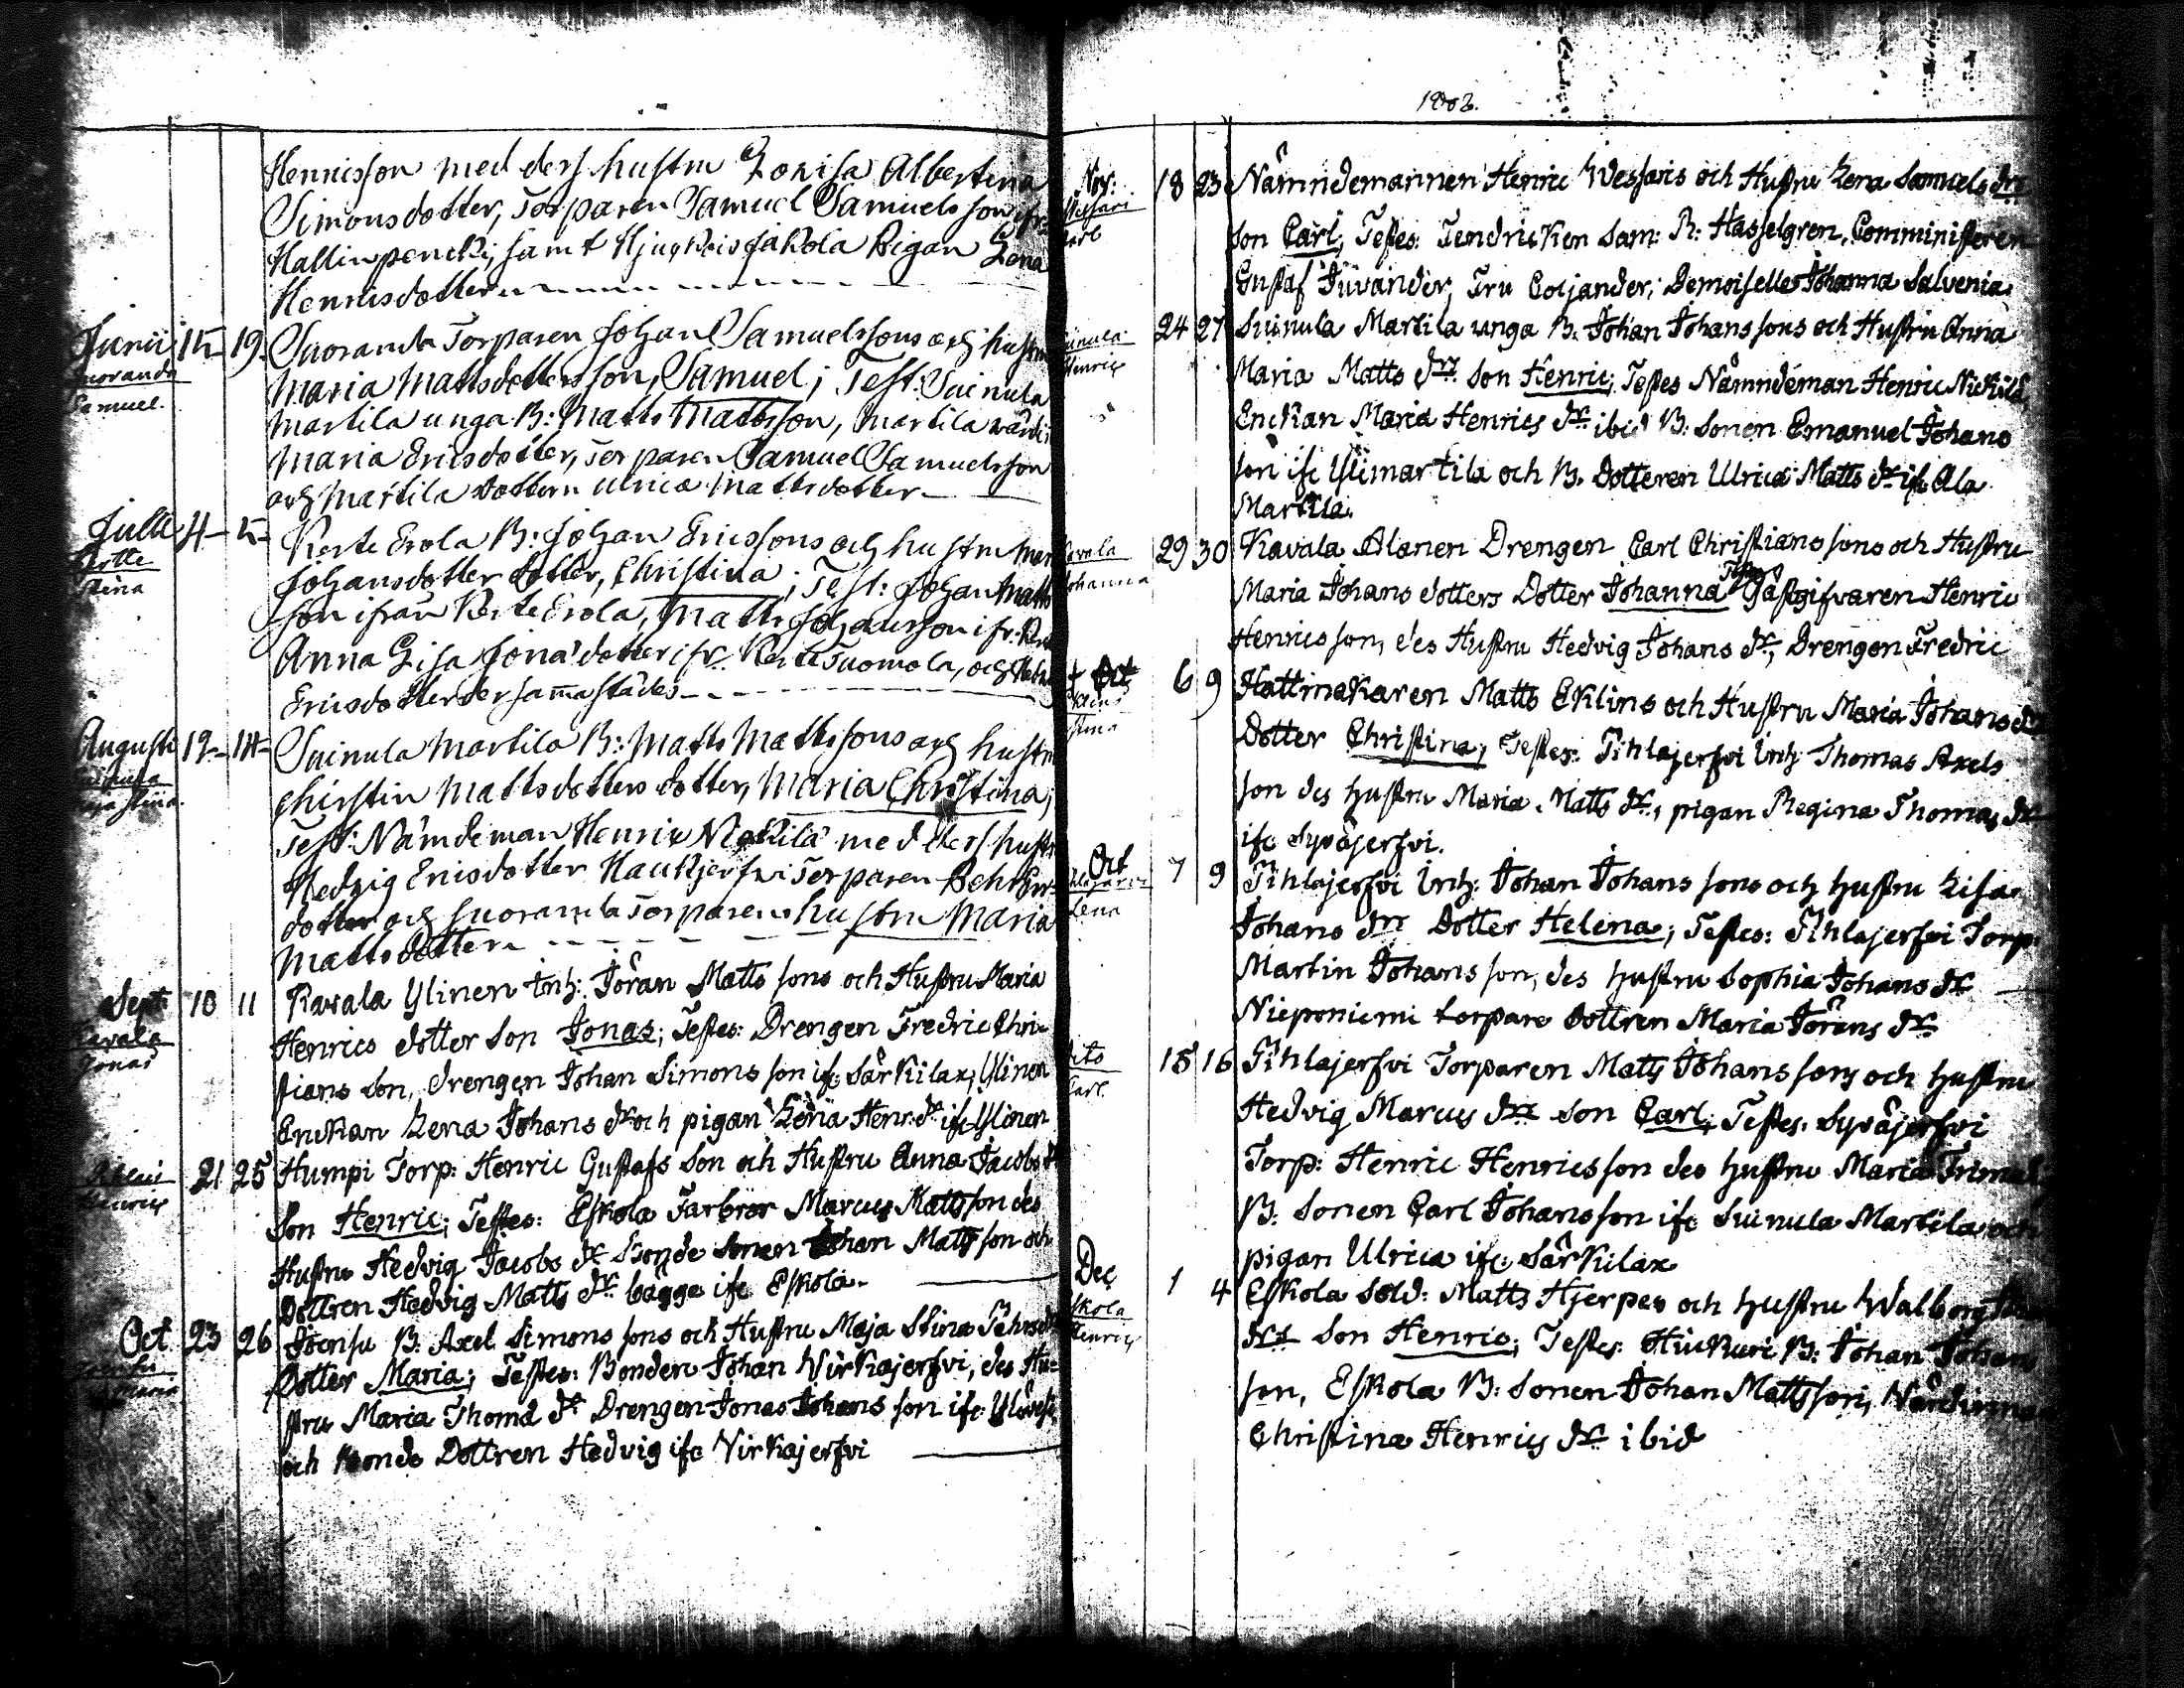 Henricsson med dess hustru Lovisa Albertina
Simonsdotter, Torparen Samuel Samuelsson ifr:
Hallinpencki, samt Hjugkois Jakola Pigan Lena
Henricsdotter
Junii 15 19. Suoranda Torparen Johan Samuelssons och hustru
Suoranda Samuel.
Maria Mattsdotters son, Samuel; Test: Suinula
Martila unga B: Matts Mattsson, Martila värdi:
Maria Ericsdotter, Torparen Samuel Samuelsson
och Martila dottern Ulrica Mattsdotter
Julii 4 5 Kertte Erola B: Johan Ericssons och hustru Mar
Kertte Stina
Johansdotter dotter, Christina; Test: Johan Matts
son ifrån Kertte Erola, Matts Johansson ifr: Kert
Anna Lisa Jonadotter ifr. Kertte Tuomola, och Hebr
Ericsdotter dersammastädes
Augusti 12 14 Suinula Martila B: Matts Mattssons och hustru
Suinula Maja Stina.
Chirstin Mattsdotters dotter, Maria Christina;
Test: Nämdeman Henric Nickilä med dess hustr
Hedvig Ericsdotter Haukjerfvi Torparen Behr Eric
dotter och Suoranda Torparens hustru Maria
Mattsdotter
Sept: 10 11 Kavala Ylinen Inh: Jöran Matts sons och Hustru Maria
Kavala Jonas
Henrics dotter Son Jonas; Testes: Drengen Fredric Chri-
stians Son, Drengen Johan Simons son ifr. Särkilax, Ylinen
Enckan Lena Johans dr och pigan Lena Henr: dr ifr Ylinen
21 25 Humpi Torp: Henric Gustafs Son och Hustru Anna Jacobs dr
Henric
Son Henric; Testes: Eskola Farbror Marcus Mattsson des
Hustru Hedvig Jacobs dr Bonde Sonen Johan Matts son och
Dottren Hedvig Matts dr bägge ifr Eskola.
Oct 23 26 Joensu B: Axel Simons sons och Hustru Maja Stina Pehrs dr
Maria
Dotter Maria; Testes: Bonden Johan Virkajerfvi, des Hu-
stru Maria Thoma dr Drengen Jonas Johans son ifr
och Bonde Dottren Hedvig ifr Virkajerfvi
1802.
Nov: 18 23 Nämndemannen Henric Wessaris och Hustru Lena Samuels drs
Wessari Carl
son Carl, Testes: Fendricken Sam: R: Hasselgren, Comministeren
Gustaf Juvander, Fru Coljander, Demoiselle Johanna Salvenia.
24 27 Suinula Martila unga B. Johan Johanssons och Hustru Anna
Suinula Henric
Maria Matts drs Son Henric; Testes Nämndeman Henric Nickilä,
Enckan Maria Henrics dr ibid B: Sonen Emanuel Johans
son ifr Ylimartila och B. Dotteren Ulrica Matts dr ifr Ala
Martila.
29 30 Kavala Alanen Drengen Carl Christianssons och Hustru
Kavala Johanna
Maria Johans dotters Dotter Johanna Testes Gästgifvaren Henric
Henricsson, des Hustru Hedvig Johans dr, Drengen Fredric
Oct 6 9 Hattmakaren Matts Eklins och Hustru Maria Johans dr
Stina
Dotter Christina; Testes: Pihlajerfvi Inh: Thomas Axels
son des hustru Maria Matts dr, pigan Regina Thomas dr
ifr Syväjerfvi.
Oct 7 9 Pihlajerfvi Inh: Johan Johans sons och hustru Lisa
Lena
Johans drs Dotter Helena; Testes: Pihlajerfvi Torp:
Martin Johansson, des hustru Sophia Johans dr
Nieponiemi torpare dottren Maria Jörans dr
Dito 15 16 Pihlajerfvi Torparen Matts Johanssons och hustru
Carl.
Hedvig Marcus drs Son Carl; Testes: Syväjerfvi
Torp: Henric Henricsson des hustru Maria
B: Sonen Carl Johansson ifr Suinula Martila och
pigan Ulrica ifr Särkilax
Dec 1 4 Eskola Sold: Matts Hjerpes och hustru Walborg
Eskola Henric
drs Son Henric; Testes: Hiukuri B: Johan Johans
son, Eskola B: Sonen Johan Mattsson, Värdinna
Christina Henrics dr ibid